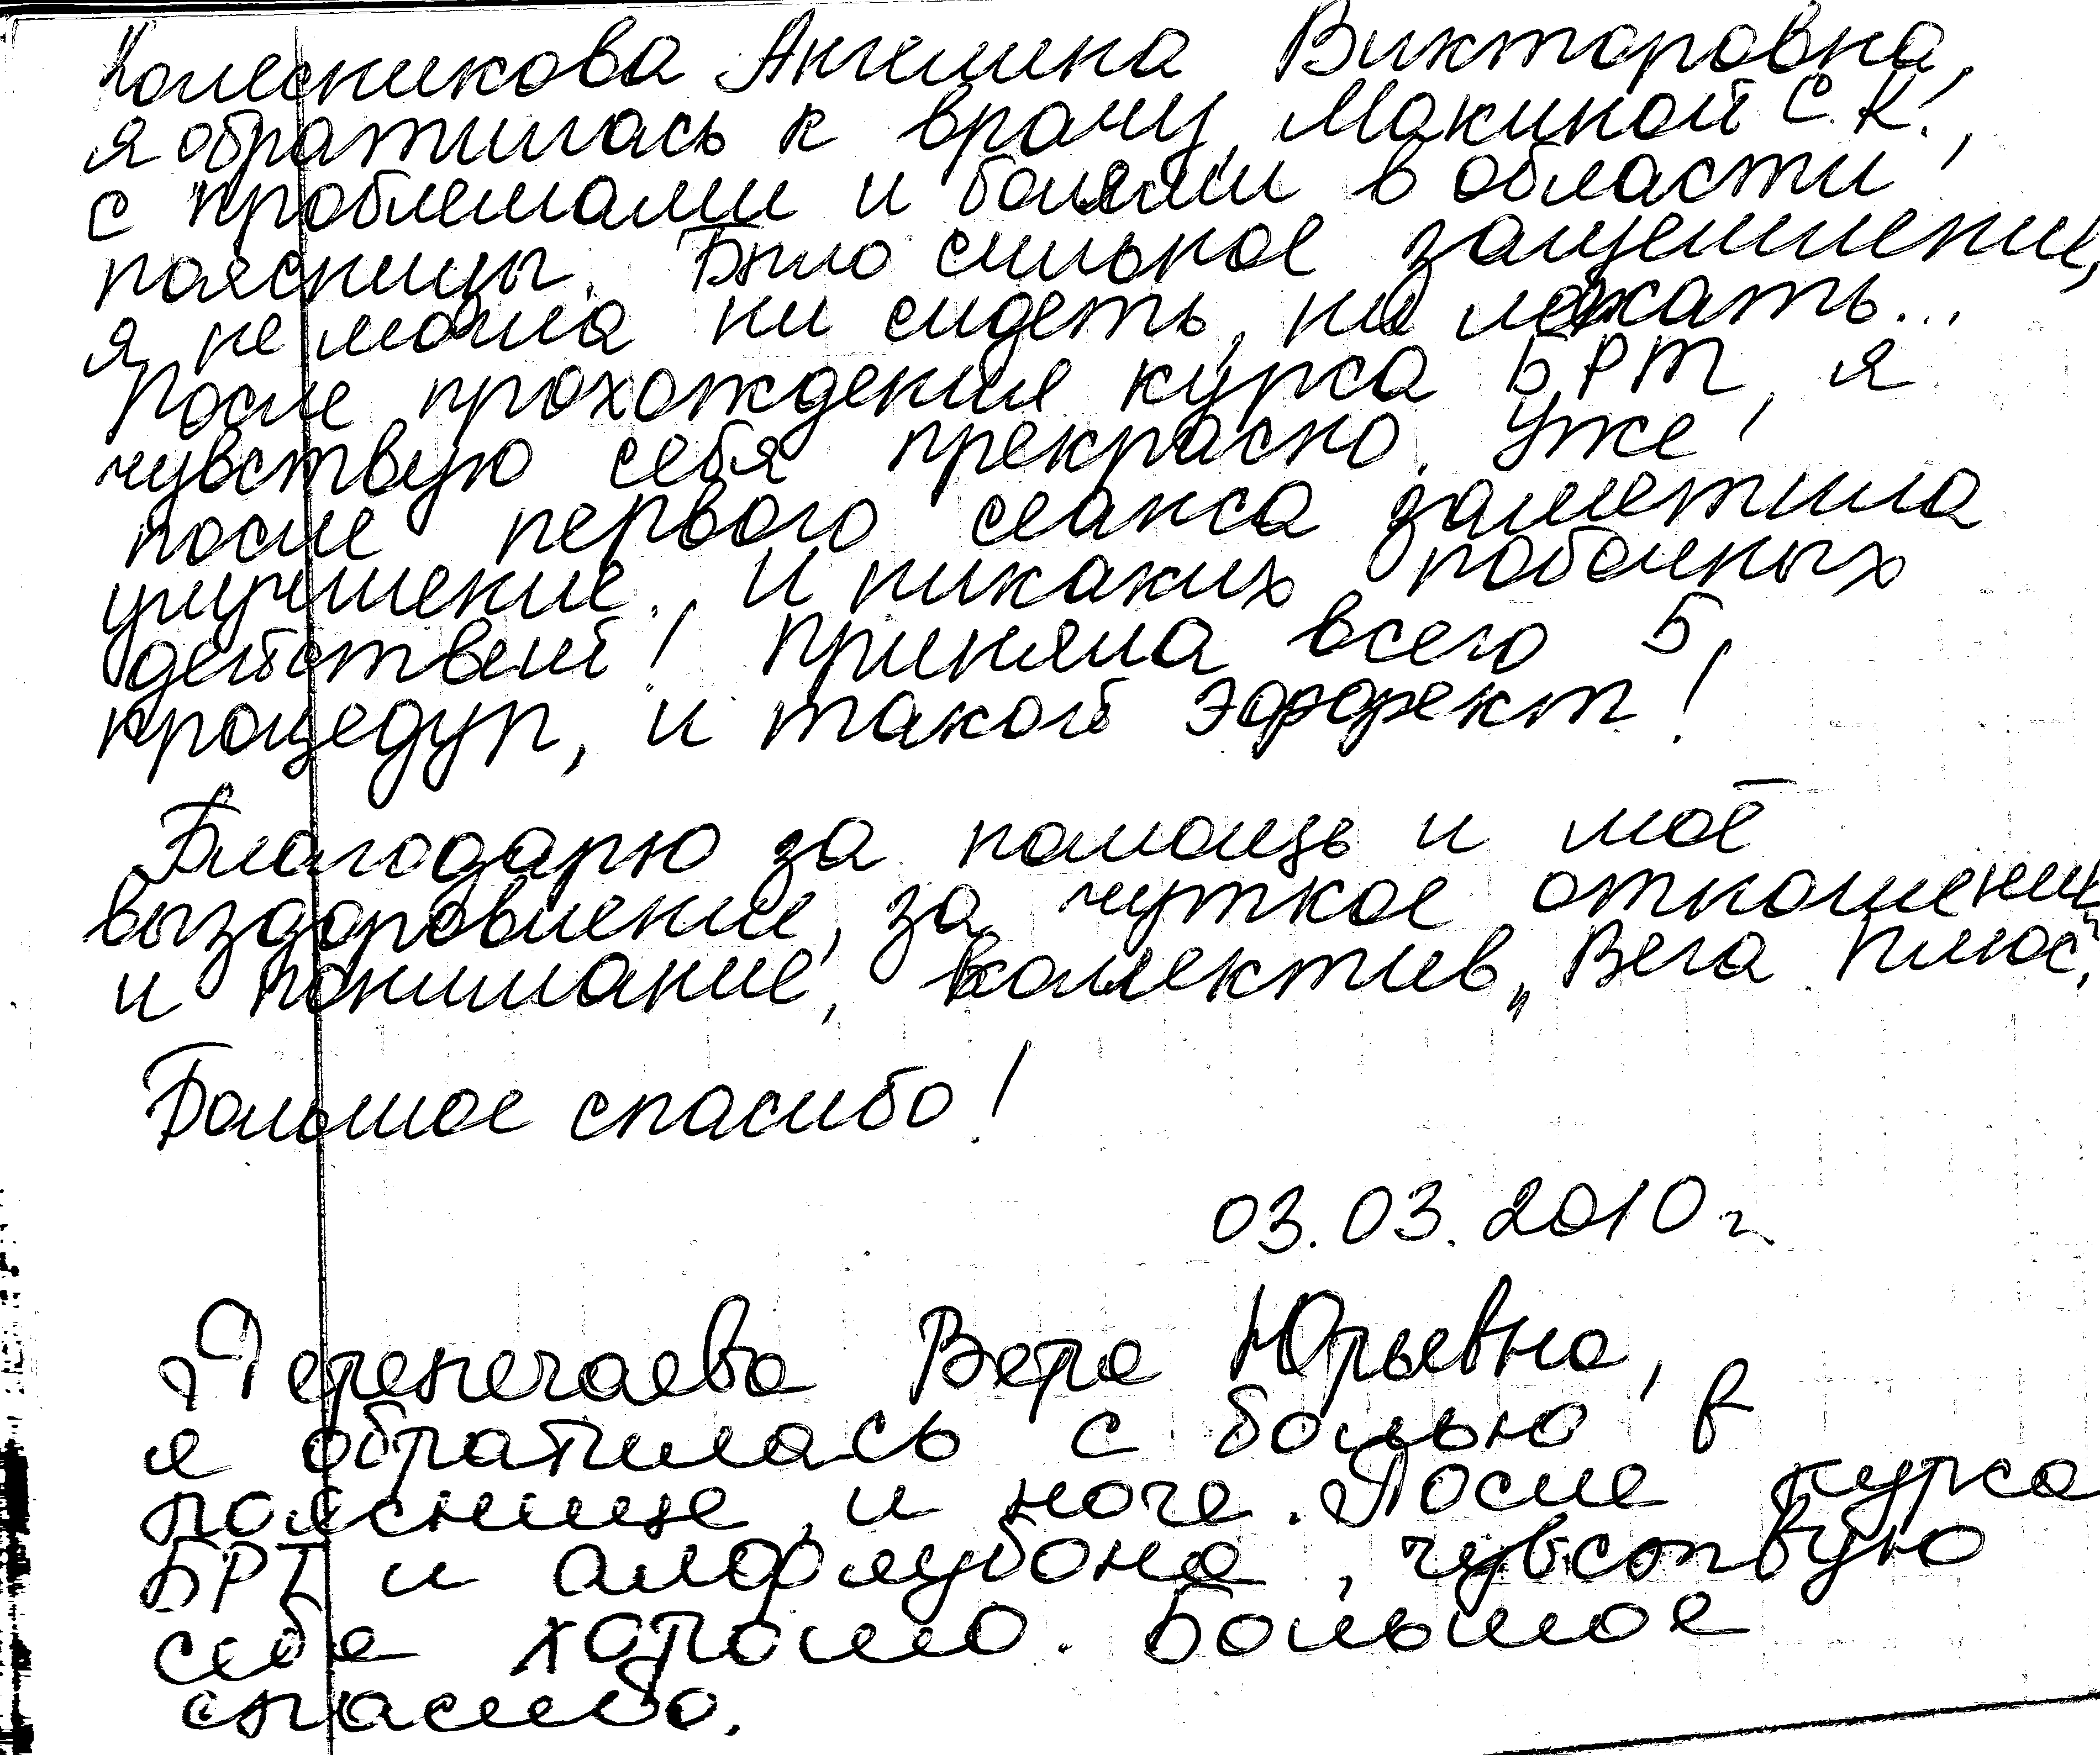 Колесникова Ангелина Викторовна,
я обратилась к врачу Макиной С.К.,
с проблемами и болями в области
поясницы. Было сильное защемление,
я не могла ни сидеть, ни лежать...
После прохождения курса БРТ, я
чувствую себя прекрасно. Уже
после первого сеанса заметила
улучшение, и никаких побочных
действий! Приняла всего 5
процедур, и такой эффект!
Благодарю за помощь и моё
выздоровление, за чуткое отношение
и понимание, коллектив „Вега Плюс",
Большое спасибо!
03.03.2010 г.
Вера Юрьевна,
я обратилась с болью в
пояснице и ноге. После курса
БРТ и, чувствую
себя хорошо. Большое
спасибо.